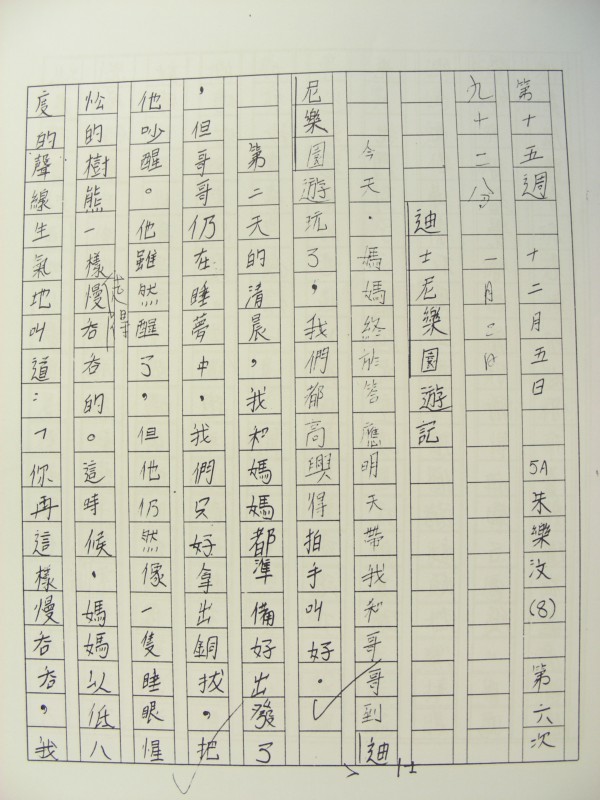 第十五週 十二月五日 5A 朱樂汶(8) 第六次
九十二分 一月二日
迪士尼樂園遊記
今天,媽媽終於答應明天帶我和哥哥到迪士
尼樂園遊玩了,我們都高興得拍手叫好。
第二天的清晨,我和媽媽都準備好出發了
,但哥哥仍在睡夢中,我們只好拿出銅拔,把
他吵醒。他雖然醒了,但他仍然像一隻睡眼惺
忪的樹熊一樣慢吞吞的。這時候,媽媽以低八
度的聲線生氣地叫道:「你再這樣慢吞吞,我